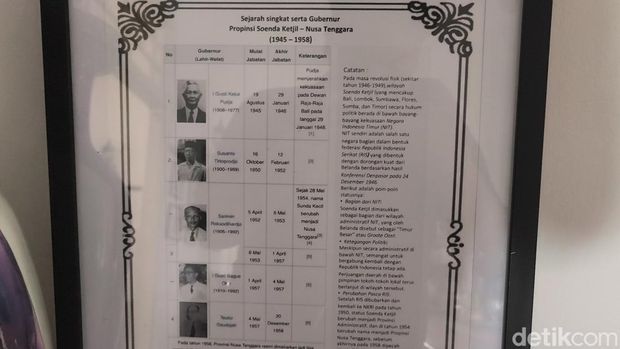 Sejarah singkat serta Gubernur
Propinsi Soenda Ketjil – Nusa Tenggara
(1945 – 1958)
No Gubernur (Lahir-Wafat) Mulai Jabatan Akhir Jabatan Keterangan
I Gusti Ketut Pudja (1908-1977) 19 Agustus 1945 29 Januari 1946 Pudja menyerahkan kekuasaan pada Dewan Raja-Raja Bali pada tanggal 29 Januari 1946.[1]
2. Susanto Tirtoprodjo (1900-1969) 16 Oktober 1950 12 Februari 1952
Sarimin Reksodihardjo (1905-1992) 5 April 1952 6 Mei 1953 Sejak 28 Mei 1954, nama Sunda Kecil berubah menjadi Nusa Tenggara
3 6 Mei 1953 1 April 1957
I Gusti Bagus Oka 1 April 1957 4 Mei 1957
4 Teuku Daudsjah 4 Mei 1957 20 Desember 1958
Catatan :
Pada masa revolusi fisik (sekitar
tahun 1946-1949), wilayah
Soenda Ketjil (yang mencakup
Bali, Lombok, Sumbawa, Flores,
Sumba, dan Timor) secara hukum
politik berada di bawah bayang-
bayang kekuasaan Negara
Indonesia Timur (NIT).
NIT sendiri adalah salah satu
negara bagian dalam bentuk
federasi Republik Indonesia
Serikat (RIS) yang dibentuk
dengan dorongan kuat dari
Belanda berdasarkan hasil
Konferensi Denpasar pada 24
Desember 1946.
Berikut adalah poin-poin
statusnya:
• Bagian dari NIT:
Soenda Ketjil dimasukkan
sebagai bagian dari wilayah
administratif NIT, yang oleh
Belanda disebut sebagai "Timur
Besar" atau Groote Oost.
• Ketegangan Politik:
Meskipun secara administratif di
bawah NIT, semangat untuk
bergabung kembali dengan
Republik Indonesia tetap ada.
Perjuangan daerah di bawah
pimpinan tokoh-tokoh lokal terus
berlanjut di wilayah tersebut.
• Perubahan Pasca RIS:
Setelah RIS dibubarkan dan
kembali ke NKRI pada tahun
1950, status Soenda Ketjil
berubah menjadi Propinsi
Administratif, dan di tahun 1954
berubah nama menjadi Propinsi
Nusa Tenggara, sebelum
akhirnya pada 1958 dipecah
Pada tahun 1958, Propinsi Nusa Tenggara
detikcom